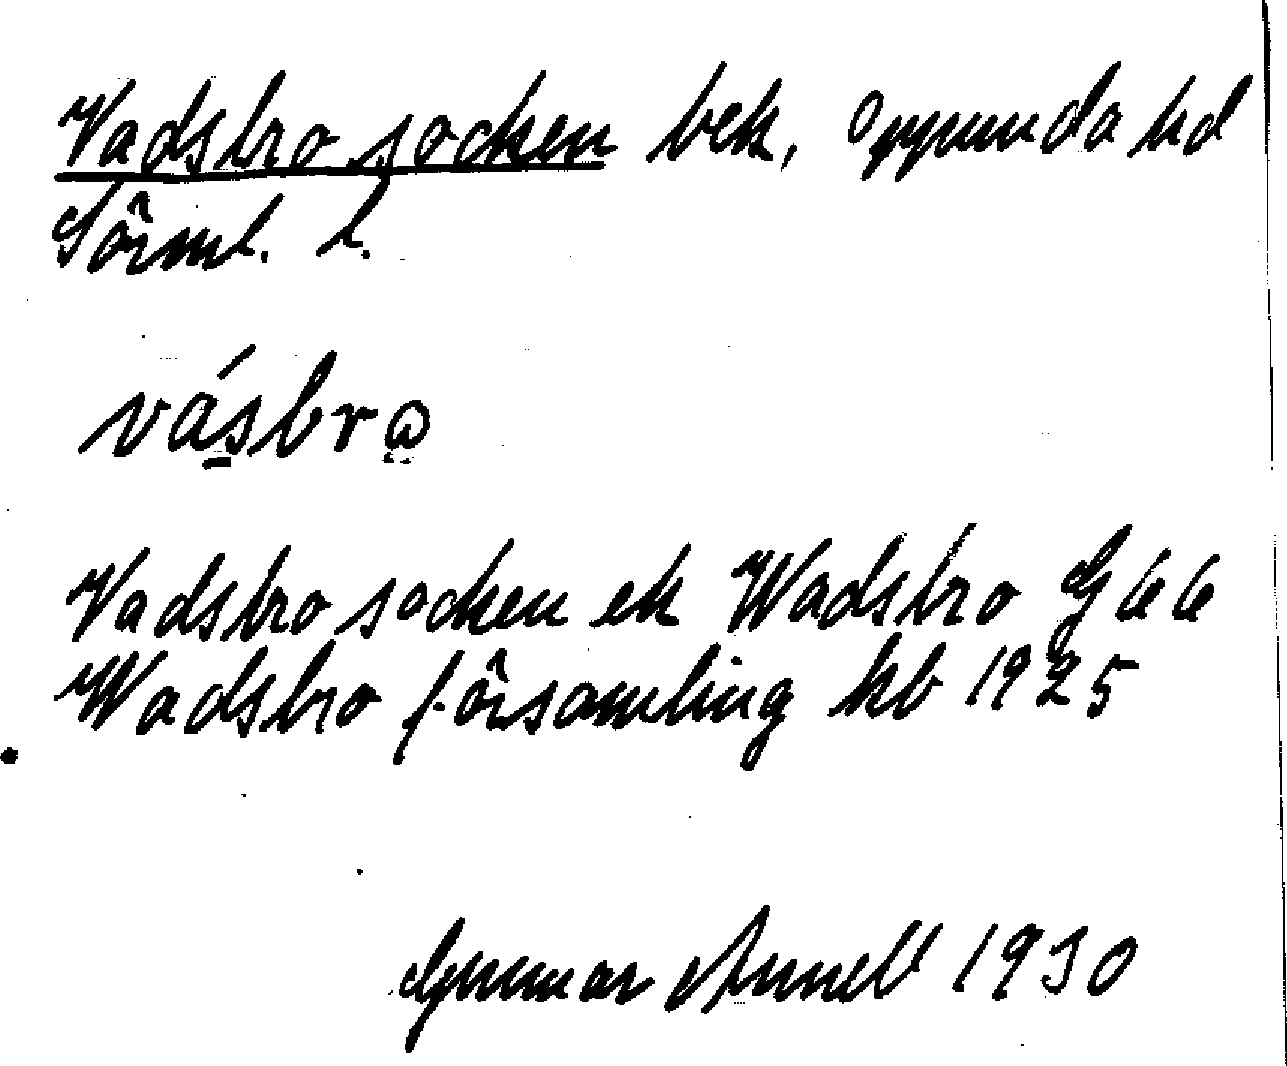 Vadsbro socken bek, Oppunda hd
Sörml. l.
vásbrω
Vadsbro socken ek Wadsbro G 66
Wadsbro församling kb 1925
Gunnar Annell 1930